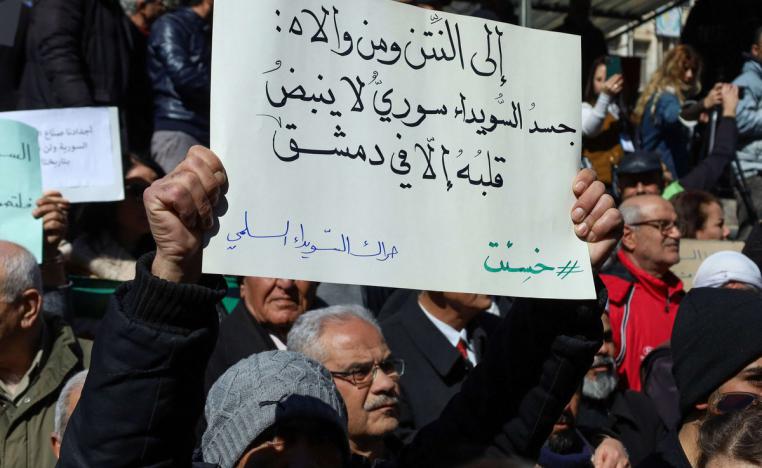 إلى النَّتن ومن والاه:
جسدُ السُّويداء سوريٌّ لا ينبضُ
قلبُهُ إلّا في دمشق
حراك السّويداء السلمي
#خسئت
أجدادنا صناع
السورية ولن
بتاريخنا
الس